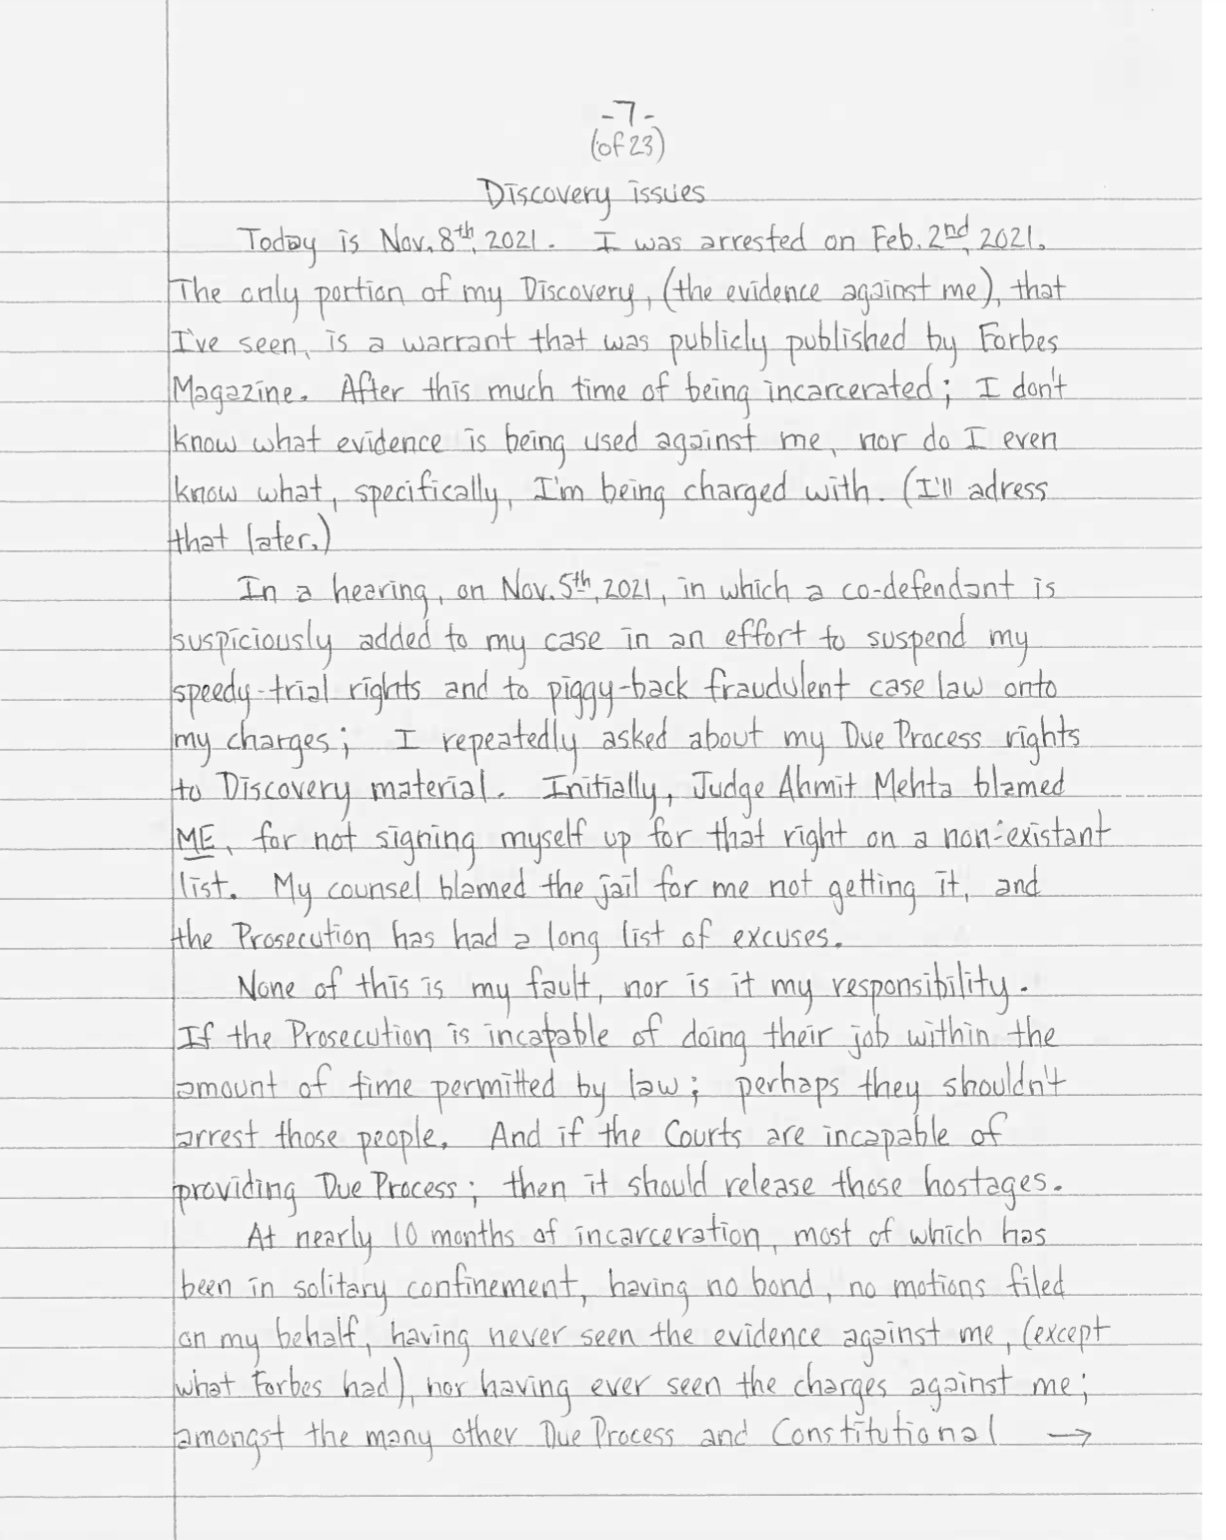 -7-
(of 23)
Discovery issues
Today is Nov. 8th, 2021. I was arrested on Feb. 2nd, 2021.
The only portion of my Discovery, (the evidence against me), that
I've seen, is a warrant that was publicly published by Forbes
Magazine. After this much time of being incarcerated; I don't
know what evidence is being used against me, nor do I even
know what, specifically, I'm being charged with. (I'll adress
that later.)
In a hearing, on Nov. 5th, 2021, in which a co-defendant is
suspiciously added to my case in an effort to suspend my
speedy-trial rights and to piggy-back fraudulent case law onto
my charges; I repeatedly asked about my Due Process rights
to Discovery material. Initially, Judge Ahmit Mehta blamed
ME, for not signing myself up for that right on a non-existant
list. My counsel blamed the jail for me not getting it, and
the Prosecution has had a long list of excuses.
None of this is my fault, nor is it my responsibility.
If the Prosecution is incapable of doing their job within the
amount of time permitted by law; perhaps they shouldn't
arrest those people. And if the Courts are incapable of
providing Due Process; then it should release those hostages.
At nearly 10 months of incarceration, most of which has
been in solitary confinement, having no bond, no motions filed
on my behalf, having never seen the evidence against me, (except
what Forbes had), nor having ever seen the charges against me;
amongst the many other Due Process and Constitutional →